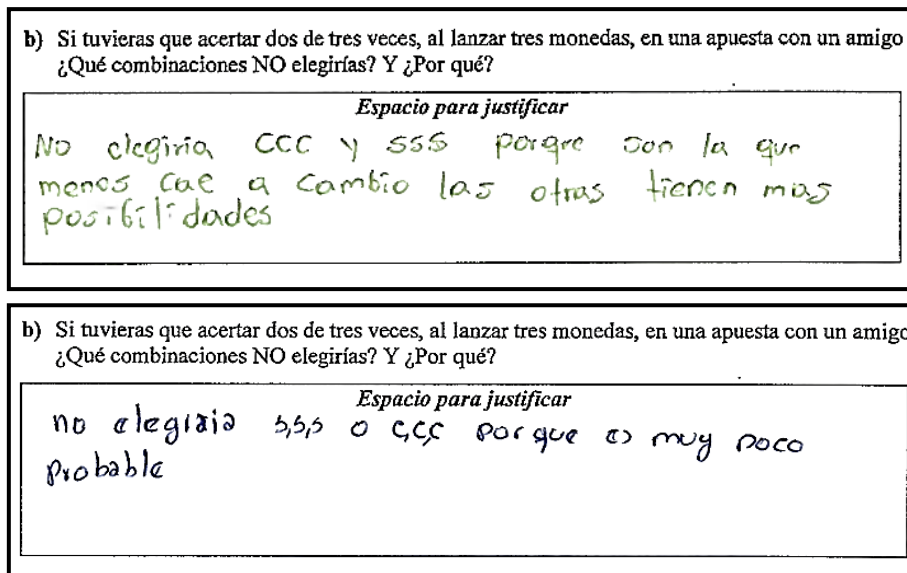 b) Si tuvieras que acertar dos de tres veces, al lanzar tres monedas, en una apuesta con un amigo
¿Qué combinaciones NO elegirías? Y ¿Por qué?
Espacio para justificar
No elegiria CCC y SSS porqre son la que
menos cae a cambio las otras tienen mas
posibilidades
b) Si tuvieras que acertar dos de tres veces, al lanzar tres monedas, en una apuesta con un amigo
¿Qué combinaciones NO elegirías? Y ¿Por qué?
Espacio para justificar
no elegiria s,s,s o c,c,c por que es muy poco
probable